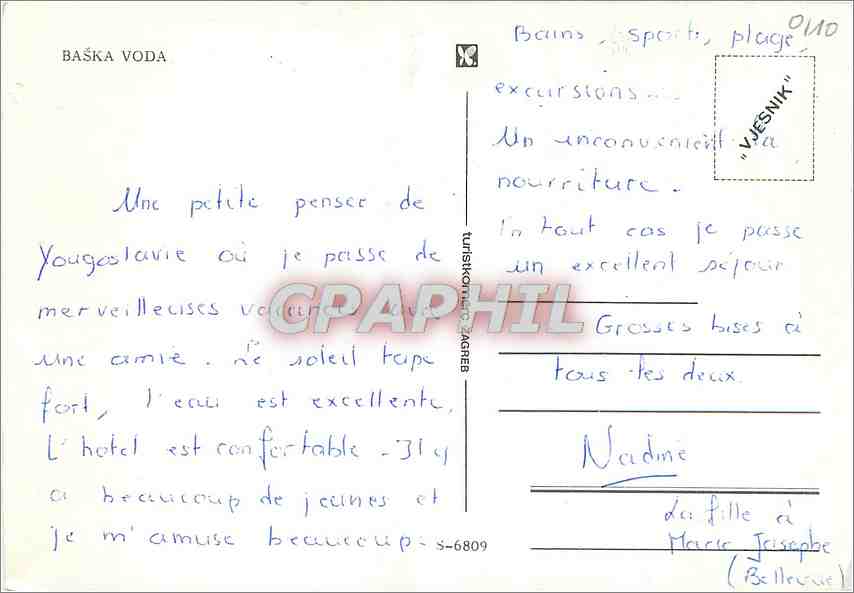 BAŠKA VODA
Une petite penser de
Yougoslavie où je passe de
merveilleuses vacances avec
une amie. Le soleil tape
fort, l'eau est excellente,
L'hotel est confortable - Il y
a beaucoup de jeunes et
je m'amuse beaucoup.
S-6809
turistkomerc ZAGREB
CPAPHIL
0/10
"VJESNIK"
Bains, sports, plage,
excursions....
Un inconvenient la
nourriture.
En tout cas je passe
un excellent séjour
Grosses bises à
tous les deux.
Nadine
La fille à
Marie Josephe
(Bellevue)